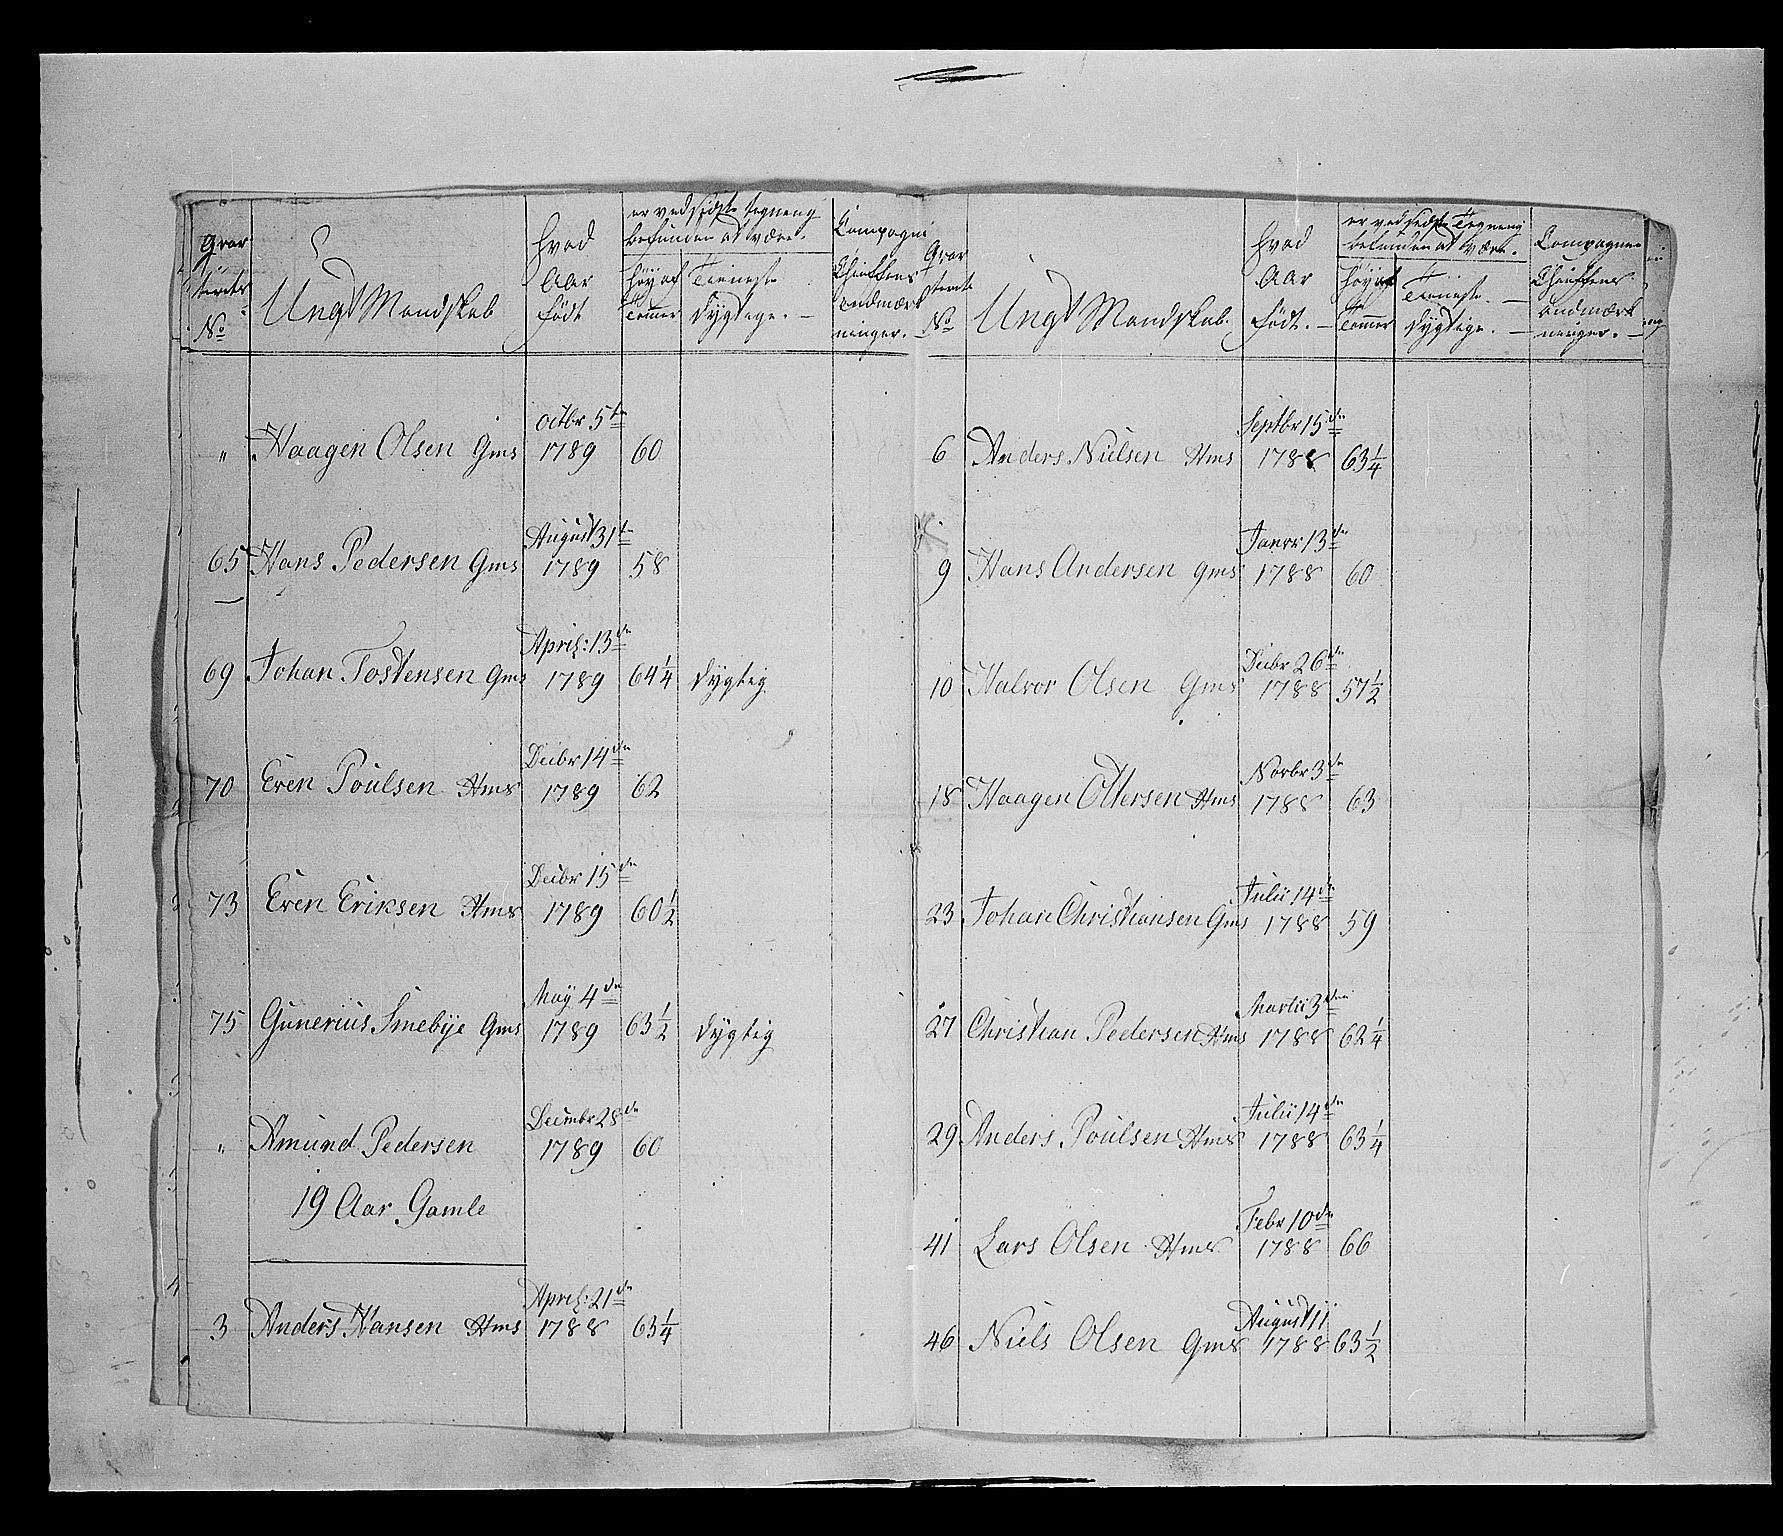 Qvar
teerets
No
Ungt Mandskab
hvad
Aar
födt
er ved sidste tegning
befunden at være.
höy af
Tommer
Tieneste
dygtige. —
Compagnie
Cheffens
Andmærk
ninger. —
„ Haagen Olsen Gms octbr 5te 1789 60
65 Hans Pedersen Gms August 31te 1789 58
69 Johan Tostensen Gms April: 13de 1789 64 1/4 dygtig
70 Even Poulsen Hms Decbr 14de 1789 62
73 Even Eriksen Hms Decbr 15de 1789 60 1/2
75 Gunerius Smebye Gms May 4de 1789 63 1/2 dygtig
„ Amund Pedersen Decembr 28de 1789 60
19 Aar Gamle
3 Anders Hansen Hms April: 21de 1788 63 1/4
Qvar
teerets
No
Ungt Mandskab.
hvad
Aar
födt. —
er ved sidste Tegning
befunden at være.
höy af
Tommer
Tieneste. —
dygtige. —
Compagnie
Cheffens
Andmærk
ninger. —
6 Anders Nielsen Hms Septbr 15de 1788 63 1/4
9 Hans Andersen Gms Janvr 13de 1788 60
10 Halvor Olsen Gms Decbr 26de 1788 57 1/2
18 Haagen Ottersen Hms Novbr 3de 1788 63
23 Johan Christiansen Gms Julii 14de 1788 59
27 Christian Pedersen Hms Martii 3de 1788 62 1/4
29 Anders Poulsen Hms Julii 14de 1788 63 1/4
41 Lars Olsen Hms Febr 10de 1788 66
46 Niels Olsen Gms August 11 1788 63 1/2